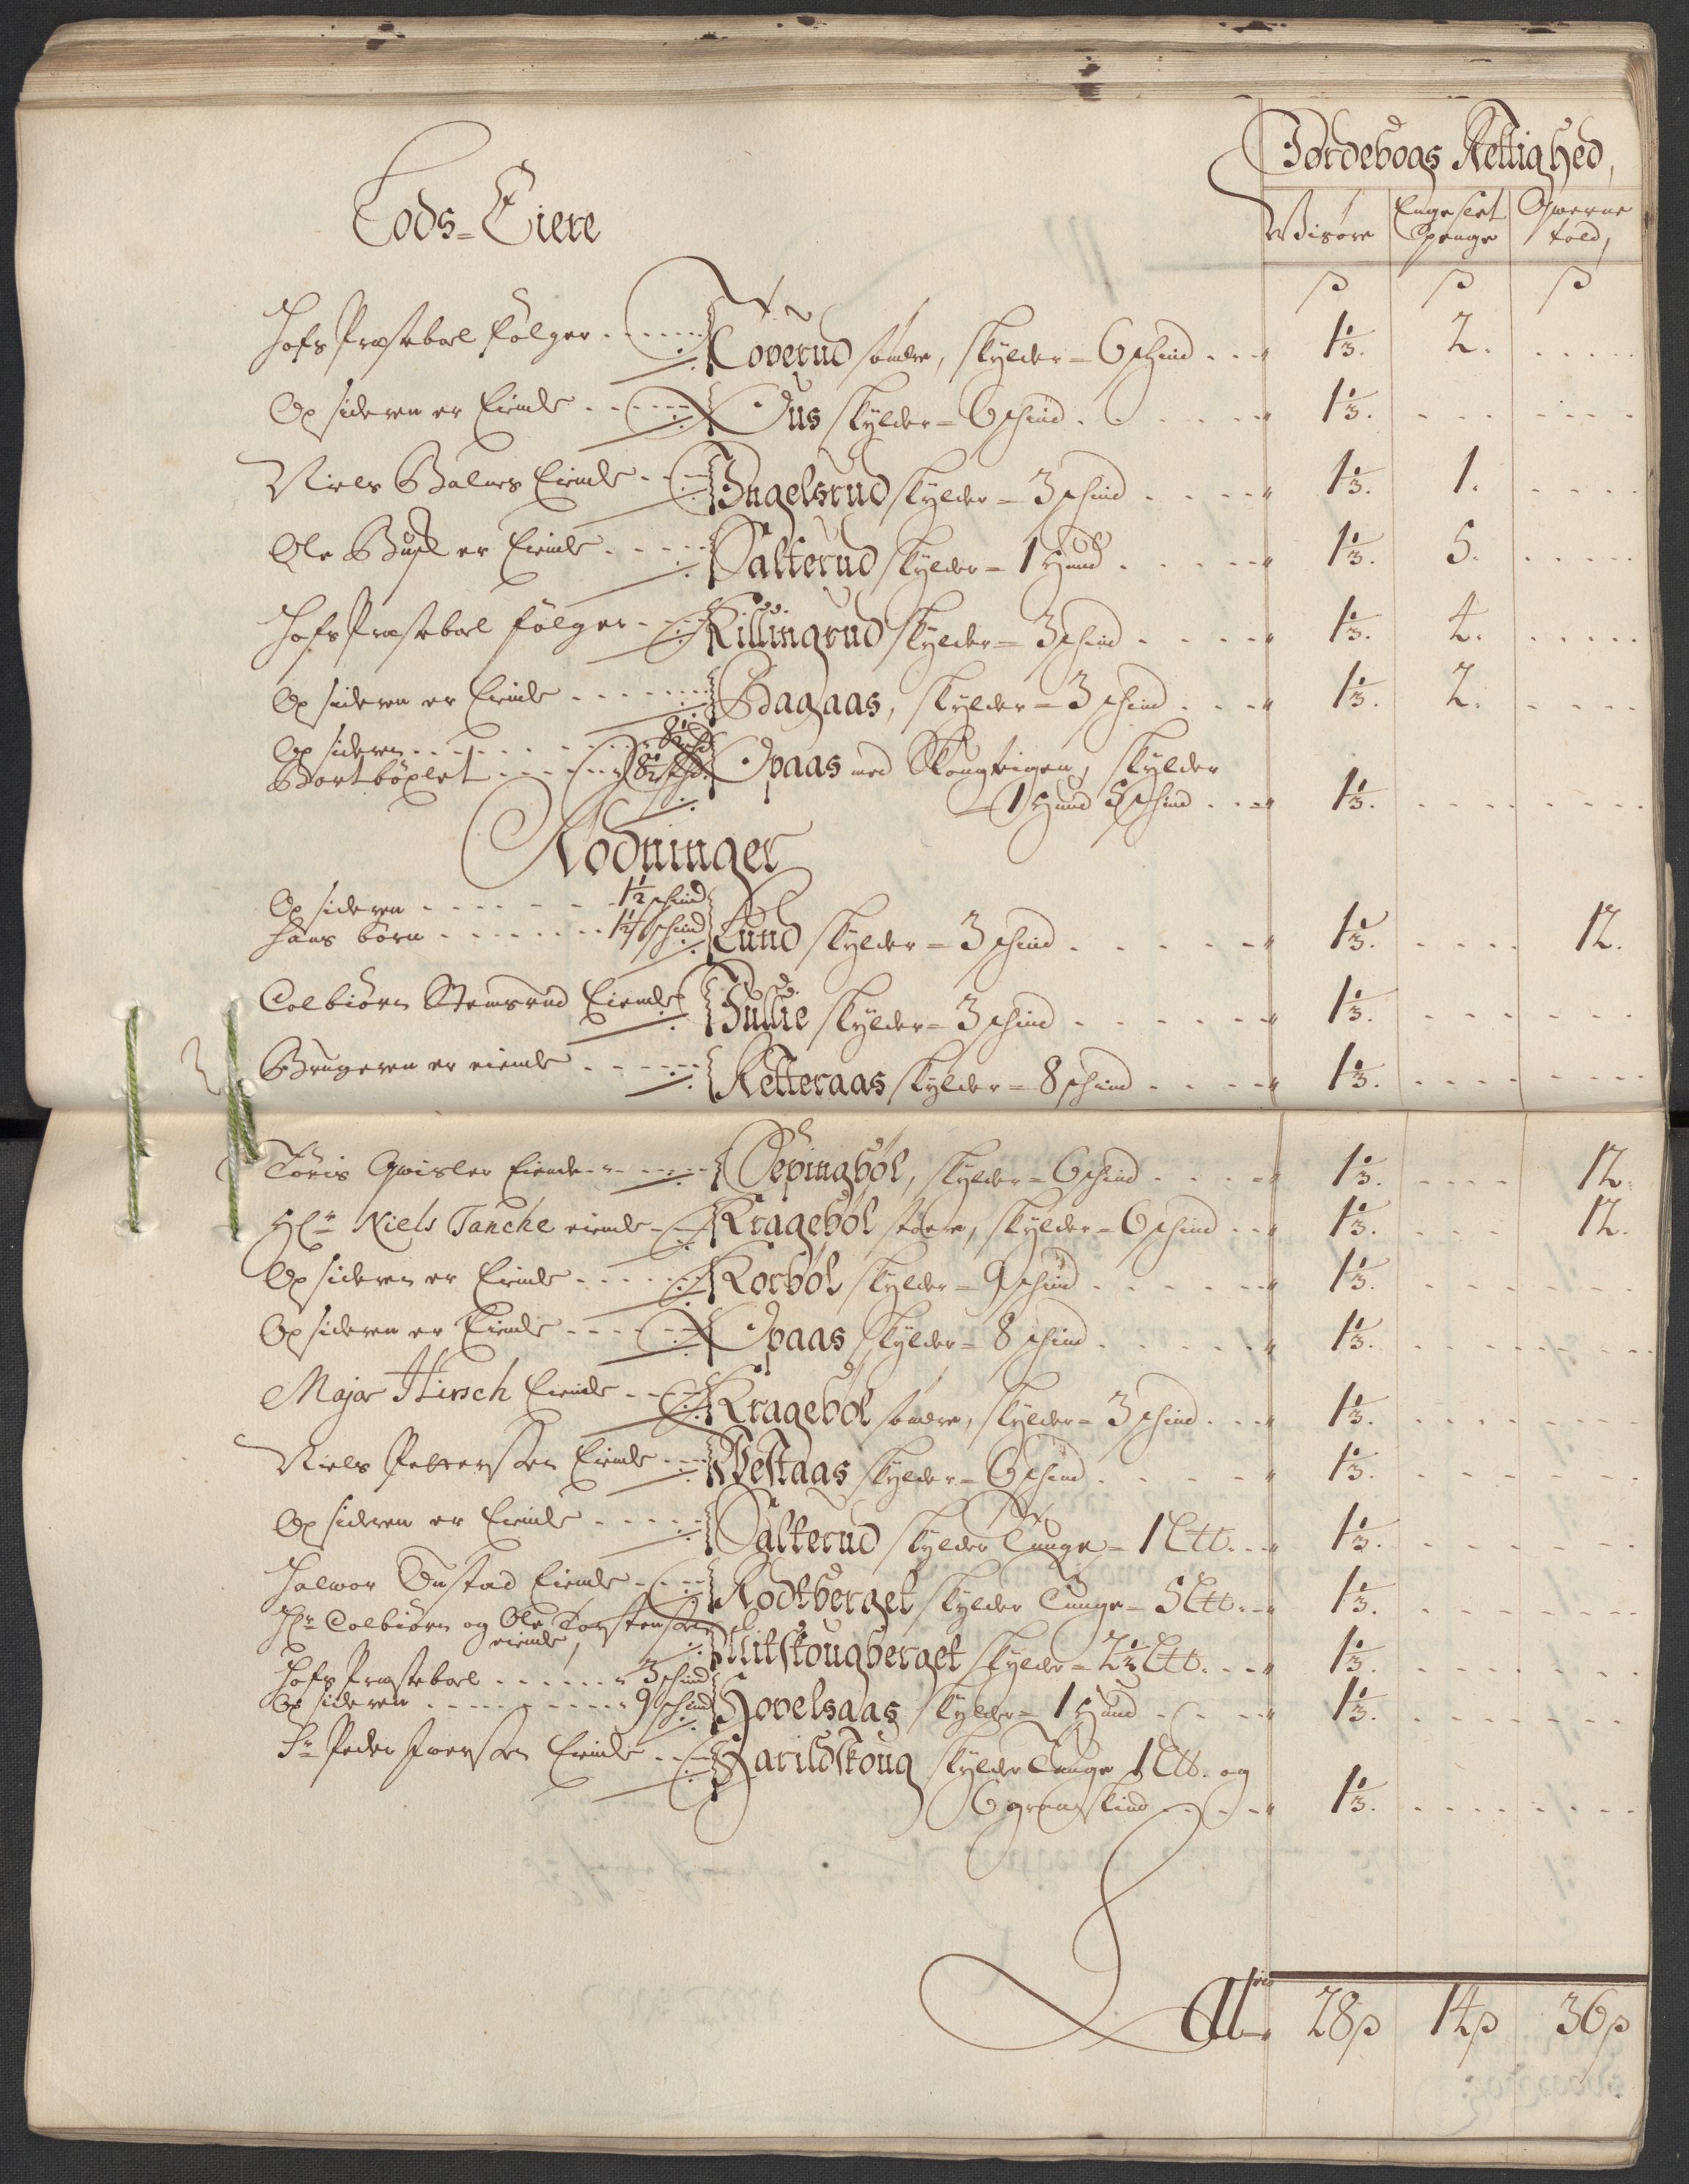 Jordebogs Rettighed,
Gods-Eiere
Visøre Engeslet Penge Qverne told,
β β β
Hofs Præsteboel følger - - - - Goverud søndre, skylder = 6 schind - - - 1⅓. 2.
Opsideren er Eiende - - - - Øus skylder = 6 schind - - - 1⅓.
Niels Balnes Eiende - - - Ingelsrud skylder = 3 schind - - - 1⅓. 1.
Ole Busk er Eiende - - - Salterud skylder = 1 Hund - - - 1⅓. 5.
Hofs Præsteboel følger - - - Killingrud skylder = 3 schind - - - 1⅓. 4.
Opsideren er Eiende - - - Bagaas, skylder = 3 schind - - - 1⅓. 2.
Opsideren - - - 8½ schd
Bortbøxlet - - - 8½ schd. Opaas med Skougeigen, skylder
= 1 Hund 5 schind - - - 1⅓.
Rodninger
Opsideren - - - 1½ schind
Hans børn - - - 1½ schind Lund skylder = 3 schind - - - 1⅓. 12.
Colbiørn Stemsrud Eiende Tullie skylder = 3 schind - - - 1⅓.
Brugeren er eiende - - - Ketteraas skylder = 8 schind - - - 1⅓.
Tøris Qvisler Eiende - - - Sepingbøl, skylder = 6 schind - - - 1⅓. 12.
Hr Niels Tanche eiende - - Kragebøl store, skylder = 6 schind - - 1⅓. 12.
Opsideren er Eiende - - - Korbøl skylder = 9 schind - - - 1⅓.
Opsideren er Eiende - - - Opaas skylder = 8 schind - - - 1⅓.
Major Hirsch Eiende - - - Kragebøl søndre, skylder = 3 schind - - - 1⅓.
Niels Pettersøn Eiende - - - Vestaas skylder = 6 schind - - - 1⅓.
Opsideren er Eiende - - - Salterud skylder Tunge = 1 Ltt. - - 1⅓.
Halvor Onstad Eiende - - - Rodtberget skylder Tunge = 5 Ltt. - - 1⅓.
Hr Colbiørn og Ole Torstensøn
eiende, Mitskougberget skylder = 2½ Ltt. - - 1⅓.
Hofs Præsteboel - - - 3 schind
Opsideren - - - 9 schind Hovelsaas skylder = 1 Hund - - - 1⅓.
Sr Peder Iversøn Eiende - - - Harildskoug skylder Tunge 1 Ltt. og
6 graaskind - - - 1⅓.
28β 14β 36β